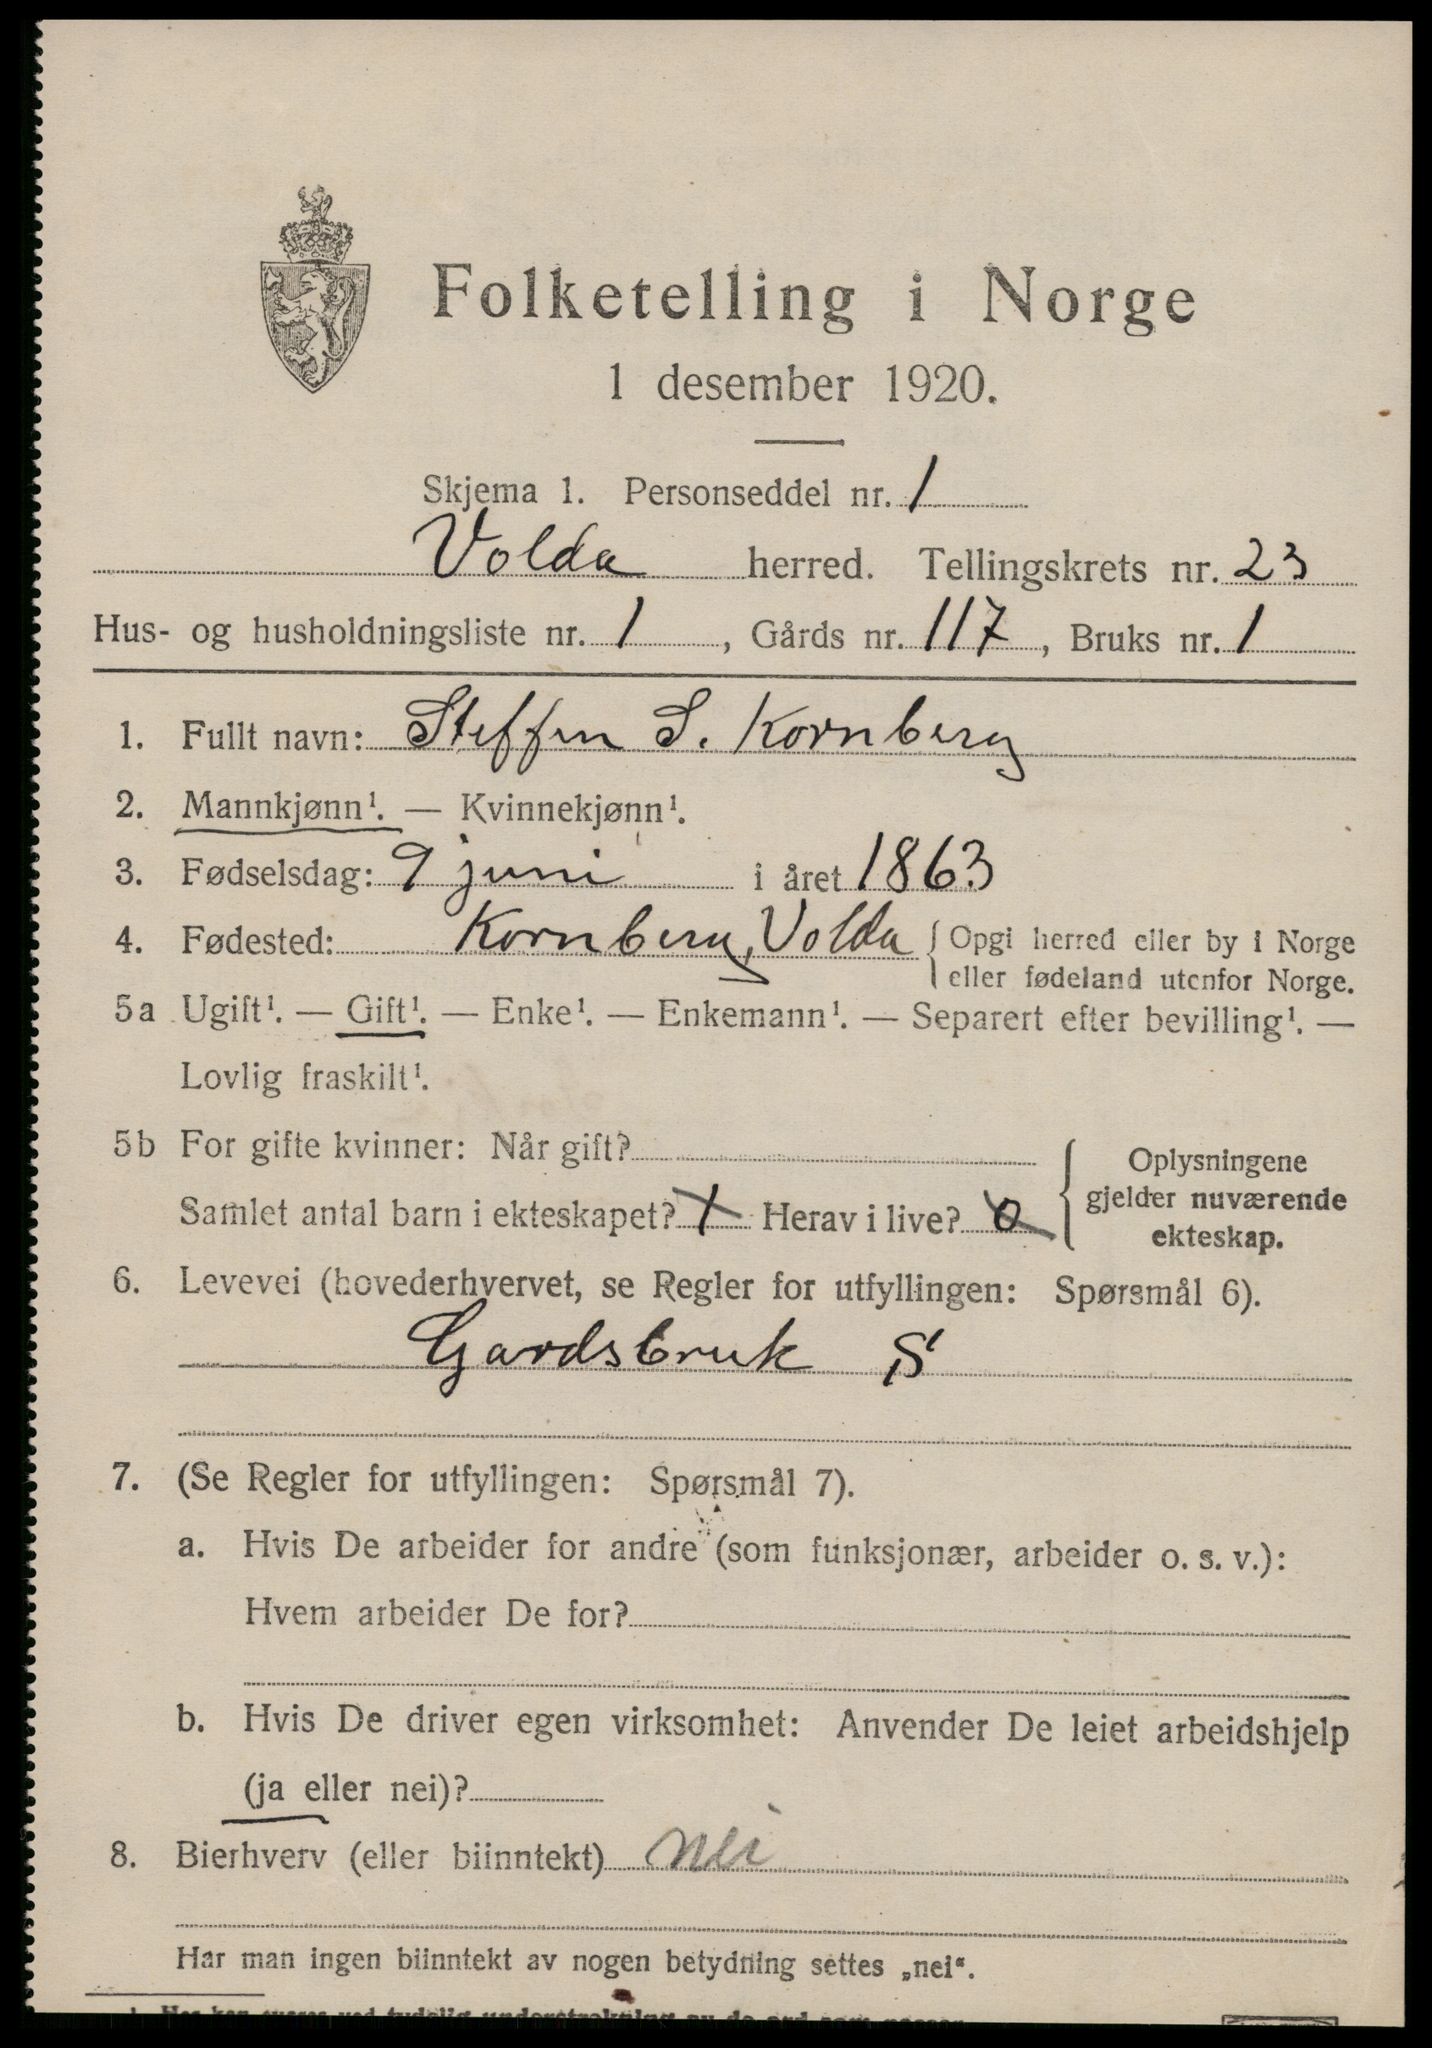 Folketelling i Norge
1 desember 1920.
Skjema 1. Personseddel nr. 1
Volda herred. Tellingskrets nr. 23
Hus- og husholdningsliste nr. 1, Gårds nr. 117, Bruks nr. 1
1. Fullt navn: Steffen S. Kornberg
2. Mannkjønn¹. — Kvinnekjønn¹.
3. Fødselsdag: 9 juni i året 1863
4. Fødested: Kornberg, Volda { Opgi herred eller by i Norge
eller fødeland utenfor Norge.
5a Ugift¹. — Gift¹. — Enke¹. — Enkemann¹. — Separert efter bevilling¹. —
Lovlig fraskilt¹.
5b For gifte kvinner: Når gift?
Samlet antal barn i ekteskapet? 1 Herav i live? 0
Oplysningene
gjelder nuværende
ekteskap.
6. Levevei (hovederhvervet, se Regler for utfyllingen: Spørsmål 6).
Gardsbruk S
7. (Se Regler for utfyllingen: Spørsmål 7).
a. Hvis De arbeider for andre (som funksjonær, arbeider o. s. v.):
Hvem arbeider De for?
b. Hvis De driver egen virksomhet: Anvender De leiet arbeidshjelp
(ja eller nei)?
8. Bierhverv (eller biinntekt) nei
Har man ingen biinntekt av nogen betydning settes „nei“.